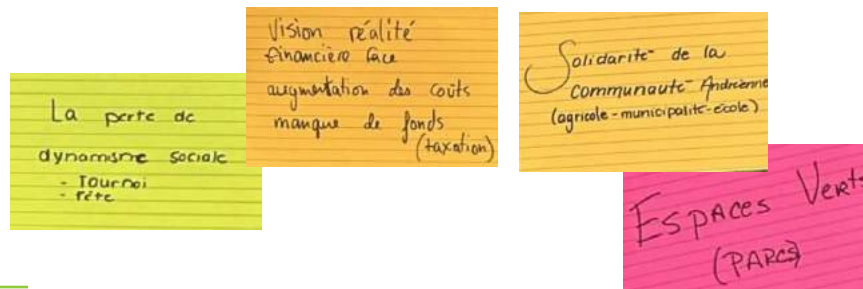 La perte de
dynamisme sociale
- Tournoi
- Fête
Vision réalité
financière face
augmentation des coûts
manque de fonds
(taxation)
Solidarité de la
communauté Andréenne
(agricole - municipalité - école)
Espaces Verts
(PARCS)